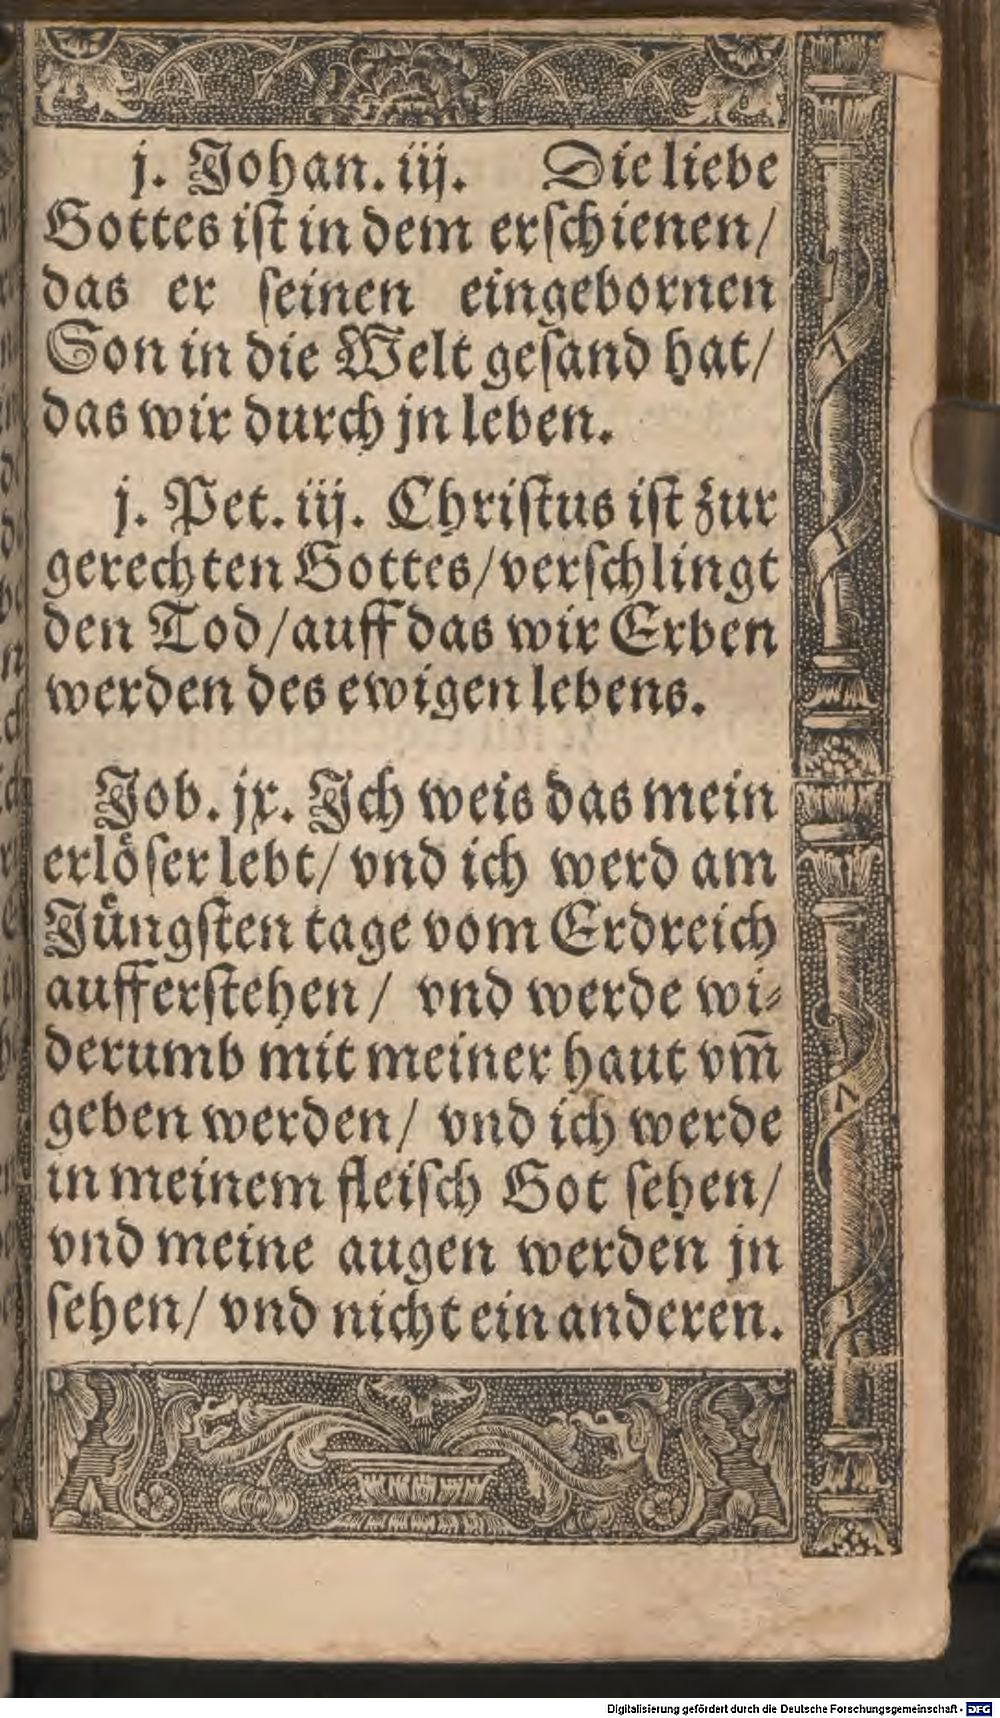 j. Johan. iij. Die liebe
Gottes iſt in dem erſchienen/
das er ſeinen eingebornen
Son in die Welt geſand hat/
das wir durch jn leben.
j. Pet. iij. Chriſtus iſt zur
gerechten Gottes/verſchlingt
den Tod/auff das wir Erben
werden des ewigen lebens.
Job. jx. Ich weis das mein
erlöſer lebt/ vnd ich werd am
Jüngſten tage vom Erdreich
aufferſtehen/ vnd werde wi⸗
derumb mit meiner haut vm̄
geben werden/ vnd ich werde
in meinem fleiſch Got ſehen/
vnd meine augen werden jn
ſehen/ vnd nicht ein anderen.
Digitalisierung gefördert durch die Deutsche Forschungsgemeinschaft - DFG